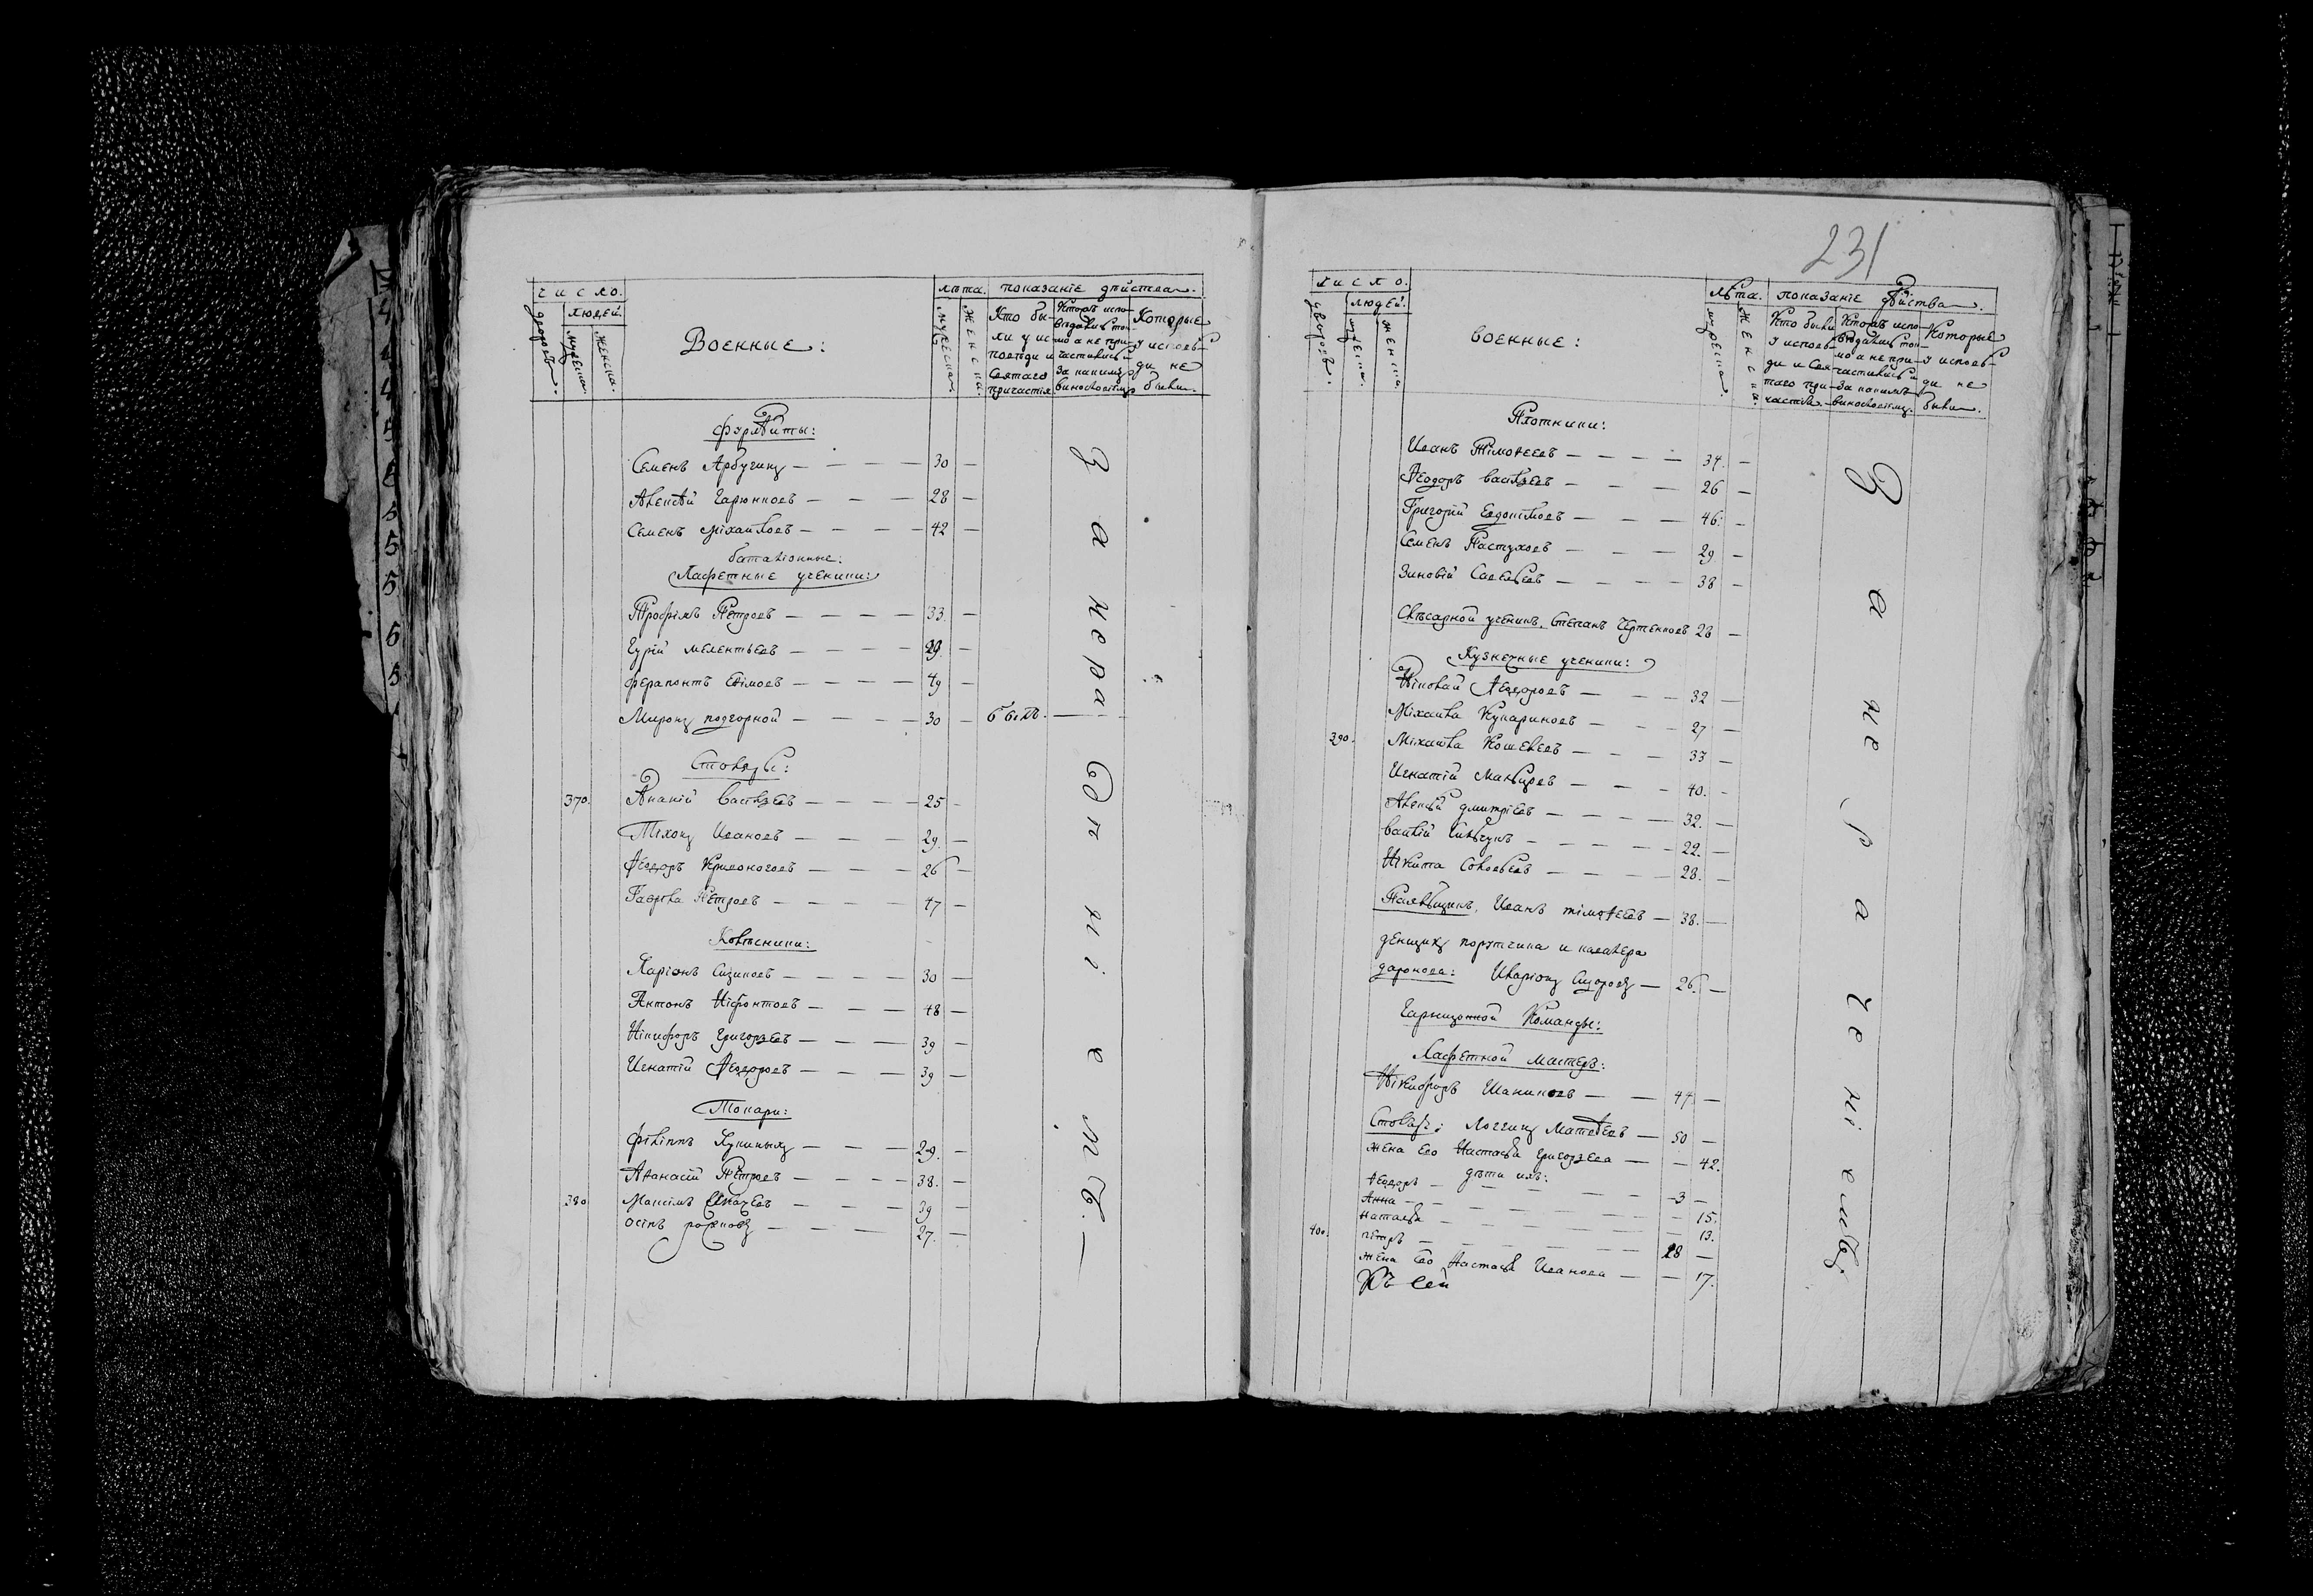 число.
людей.
дворовъ.
мужеска.
женска.
Военные:
лѣта.
мужеска.
женска.
показаніе дѣйства.
Кто бы-
ли у ис-
повѣди и
Святаго
причастія.
Которые испо-
вѣдались то-
мо а не при-
частились и
за какимъ
винословіемъ
Которые
у исповѣ-
ди не
были.
фурлѣиты:
Семенъ Арбузинъ — 30 —
Алексѣй Гарюнковъ — 28 —
Семенъ Міхаиловъ — 42 —
баталіонные:
Лафетные ученики:
Трофімъ Петровъ — 33 —
Гурій Мелентьевъ — 29. —
ферапонтъ — 49 —
Миронъ подгорной — 30 — былъ. —
Столяры:
370. Ананій Василзевъ — 25 —
Тіхонъ Ивановъ — 29. —
Ѳеодоръ Кривоноговъ — 26 —
Гаврила Петровъ — 47 —
Колѣсники:
Ларіонъ Сизиковъ — 30 —
Антонъ Ніфонтовъ — 48 —
Нікифоръ Григорзевъ — 39 —
Игнатій Ѳеодоровъ — 39 —
Токари:
філіппъ — 29. —
Аѳанасій Петровъ — 38. —
380 Максімъ — 39 —
Осіпъ — 27. —
За нерадѣніемъ. —
231
число.
людей.
дворовъ.
мужеска.
женска.
военные:
лѣта.
мужеска.
женска.
показаніе дѣйства.
Кто были
у исповѣ-
ди и Свя-
таго при-
частія.
Которые испо-
вѣдались то-
мо а не при-
частились и
за какимъ
винословіемъ.
Которые
у исповѣ-
ди не
были.
Плотники:
Иванъ Тімоѳеевъ — 34. —
Ѳеодоръ Василзевъ — 26 —
Григорій Евдокімовъ — 46. —
Семенъ Пастуховъ — 29 —
Зиновій Савельевъ — 38 —
Слѣсарной ученикъ, Степанъ Чертенковъ 28 —
Кузнечные ученики:
Ніколай Ѳеодоровъ — 32 —
Міхаила Кукариновъ — 27 —
390. Міхаила Кошелевъ — 33 —
Игнатій — 40. —
Алексѣй Дмитріевъ — 32. —
василій — 22. —
Нікита Соловьевъ — 28. —
Паяльщикъ, Иванъ тімоѳеевъ — 38. —
денщикъ порутчика и кавалера
даронова: Иларіонъ Сидоровъ — 26. —
Гарнизонной Команды:
Лафетной мастеръ:
Нікифоръ Шаниковъ — 44 —
Столяръ: Логгинъ Матвѣевъ — 50 —
жена его Настасья григорзева — — 42.
дѣти ихъ:
Ѳеодоръ — 3 —
Анна — 15.
Наталья — 13.
400. пётръ — 28 —
жена его Настасья Иванова — — 17.
Къ сей
За нерадѣніемъ.